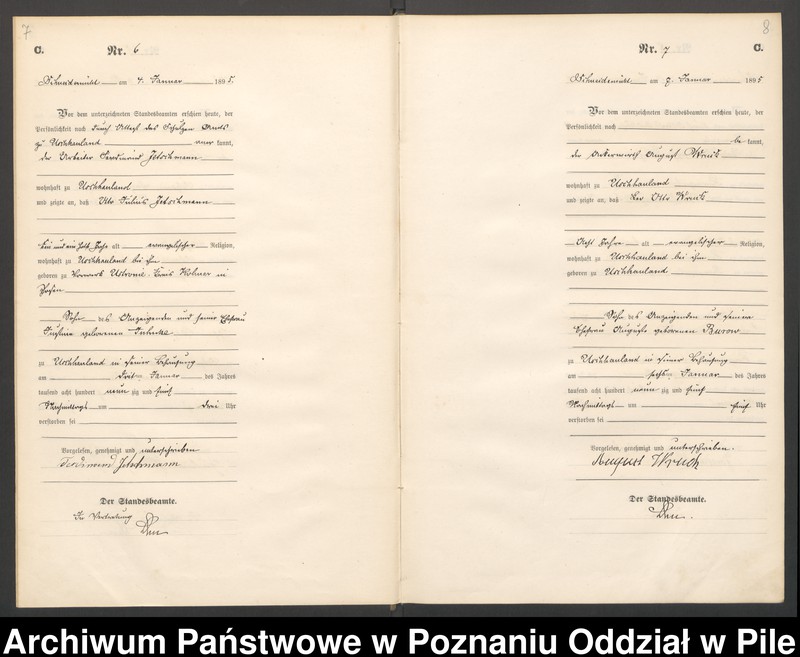 7
C.
Nr. 6
Schneidemühl am 4. Januar 1895.
Vor dem unterzeichneten Standesbeamten erschien heute, der
Persönlichkeit nach durch Attest des Schulzen
zu Uschhauland kannt,
der Arbeiter Ferdinand Jetschmann
wohnhaft zu Uschhauland
und zeigte an, daß Otto Julius Jetschmann
ein und ein halb Jahr alt evangelischer Religion,
wohnhaft zu Uschhauland bei ihm
geboren zu Vorwerk Kreis Kolmar in
Posen
Sohn des Anzeigenden und seiner Ehefrau
Justine geborenen
zu Uschhauland in seiner Behausung
am dritten Januar des Jahres
tausend acht hundert neun zig und fünf
Nachmittags um drei Uhr
verstorben sei
Vorgelesen, genehmigt und unterschrieben
Ferdinand Jetschmann
Der Standesbeamte.
In Vertretung
8
Nr. 7
C.
Schneidemühl am 7. Januar 1895
Vor dem unterzeichneten Standesbeamten erschien heute, der
Persönlichkeit nach
be kannt,
der Ackerwirth August Wruck
wohnhaft zu Uschhauland
und zeigte an, daß Leo Otto Wruck
acht Jahre alt evangelischer Religion,
wohnhaft zu Uschhauland bei ihm
geboren zu Uschhauland
Sohn des Anzeigenden und seiner
Ehefrau Auguste geborenen Burow
zu Uschhauland in seiner Behausung
am sechsten Januar des Jahres
tausend acht hundert neun zig und fünf
Nachmittags um fünf Uhr
verstorben sei
Vorgelesen, genehmigt und unterschrieben.
August Wruck
Der Standesbeamte.
Archiwum Państwowe w Poznaniu Oddział w Pile